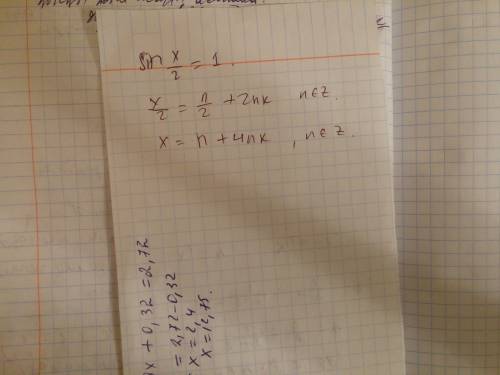 sin x/2 = 1.
x/2 = π/2 + 2πk n∈z.
x = π + 4πk , n∈z.
x + 0,32 = 2,72
= 2,72 - 0,32
x = 2,4
x = 12,75.